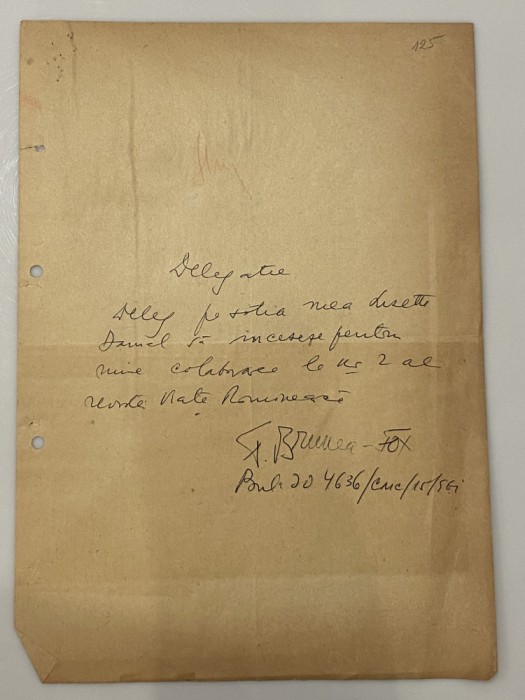 125
Delegatie
Deleg pe sotia mea Lisette
Daniel să incaseze pentru
mine colaborarea la nr 2 al
revistei Viața Romînească
F. Brunea-Fox
20 4636/CMC/15/